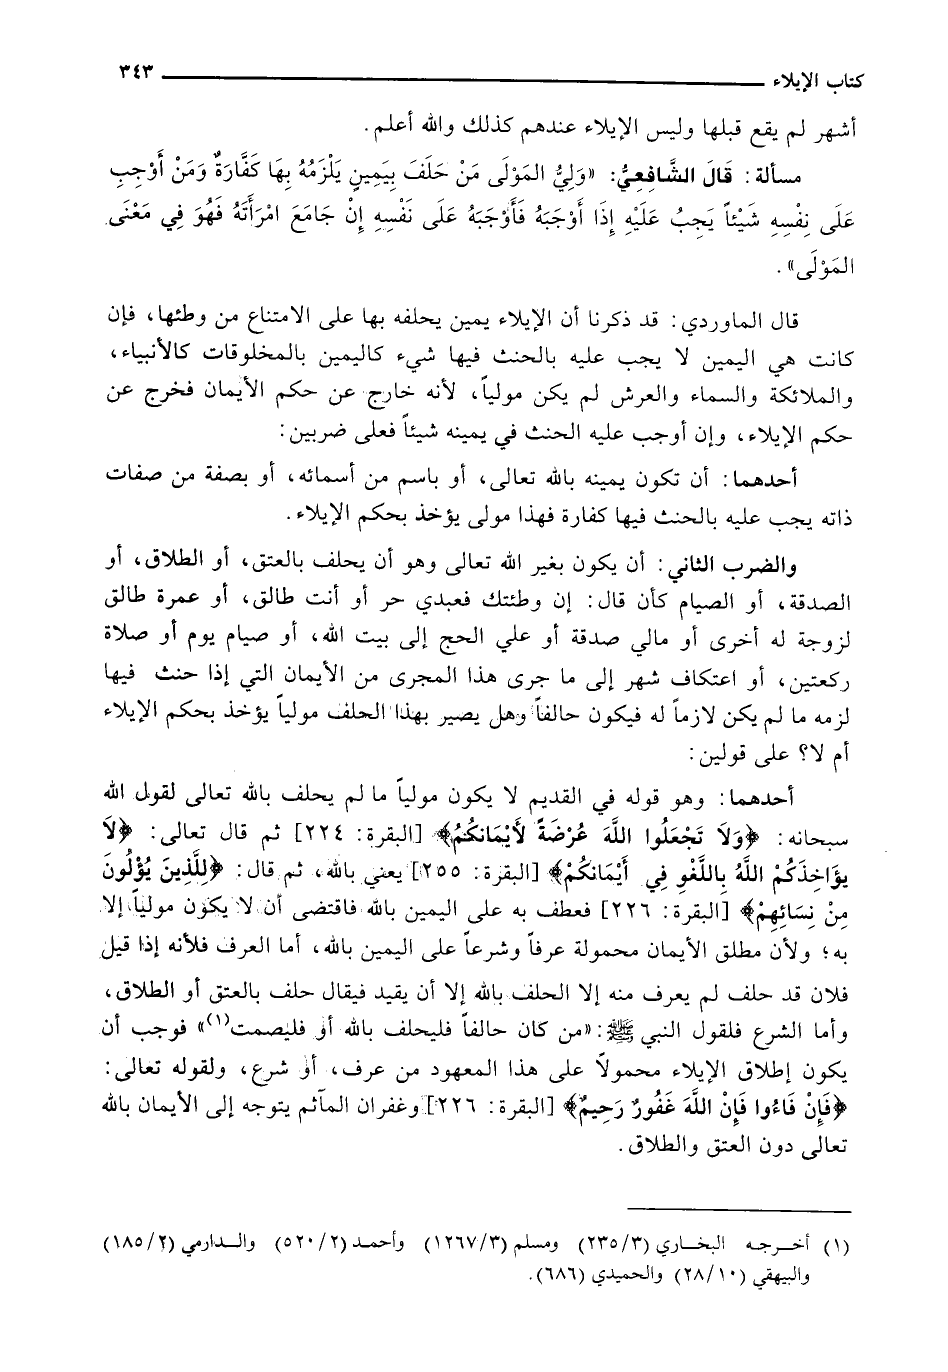 كتاب الإيلاء ٣٤٣
أشهر لم يقع قبلها وليس الإيلاء عندهم كذلك والله أعلم.
مسألة: قَالَ الشَّافِعِيُّ: «وَلِيُّ المَوْلَى مَنْ حَلَفَ بِيَمِينٍ يَلْزَمُهُ بِهَا كَفَّارَةٌ وَمَنْ أَوْجِبِ
عَلَى نِفْسِهِ شَيْئاً يَجِبُ عَلَيْهِ إِذَا أَوْجَبَهُ فَأَوْجَبَهُ عَلَى نَفْسِهِ إِنْ جَامَعَ امْرَأَتَهُ فَهُوَ فِي مَعْنَى
المَوْلَى».
قال الماوردي: قد ذكرنا أن الإيلاء يمين يحلفه بها على الامتناع من وطئها، فإن
كانت هي اليمين لا يجب عليه بالحنث فيها شيء كاليمين بالمخلوقات كالأنبياء،
والملائكة والسماء والعرش لم يكن مولياً، لأنه خارج عن حكم الأيمان فخرج عن
حكم الإيلاء، وإن أوجب عليه الحنث في يمينه شيئاً فعلى ضربين:
أحدهما: أن تكون يمينه بالله تعالى، أو باسم من أسمائه، أو بصفة من صفات
ذاته يجب عليه بالحنث فيها كفارة فهذا مولى يؤخذ بحكم الإيلاء.
والضرب الثاني: أن يكون بغير الله تعالى وهو أن يحلف بالعتق، أو الطلاق، أو
الصدقة، أو الصيام كأن قال: إن وطئتك فعبدي حر أو أنت طالق، أو عمرة طالق
لزوجة له أخرى أو مالي صدقة أو علي الحج إلى بيت الله، أو صيام يوم أو صلاة
ركعتين، أو اعتكاف شهر إلى ما جرى هذا المجرى من الأيمان التي إذا حنث فيها
لزمه ما لم يكن لازماً له فيكون حالفاً وهل يصير بهذا الحلف مولياً يؤخذ بحكم الإيلاء
أم لا؟ على قولين:
أحدهما: وهو قوله في القديم لا يكون مولياً ما لم يحلف بالله تعالى لقول الله
سبحانه: ﴿وَلَا تَجْعَلُوا اللَّهَ عُرْضَةً لأَيْمَانكُمُ﴾ [البقرة: ٢٢٤] ثم قال تعالى: ﴿لَا
يؤَاخِذَكُمْ اللَّهُ بِاللَّغوِ فِي أَيْمَانَكُمْ﴾ [البقرة: ٢٥٥] يعني بالله، ثم قال: ﴿لِلَّذِينَ يُؤْلُونَ
مِنْ نِسَائِهِمْ﴾ [البقرة: ٢٢٦] فعطف به على اليمين بالله فاقتضى أن لا يكون مولياً إلا
به؛ ولأن مطلق الأيمان محمولة عرفاً وشرعاً على اليمين بالله، أما العرف فلأنه إذا قيل
فلان قد حلف لم يعرف منه إلا الحلف بالله إلا أن يقيد فيقال حلف بالعتق أو الطلاق،
وأما الشرع فلقول النبي ﷺ: «من كان حالفاً فليحلف بالله أو فليصمت(١)» فوجب أن
يكون إطلاق الإيلاء محمولاً على هذا المعهود من عرف، أو شرع، ولقوله تعالى:
﴿فَإِنْ فَاءُوا فَإِنْ اللَّهَ غَفُورٌ رَحِيمٌ﴾ [البقرة: ٢٢٦] وغفران المآثم يتوجه إلى الأيمان بالله
تعالى دون العتق والطلاق.
(١) أخرجه البخاري (٢٣٥/٣) ومسلم (١٢٦٧/٣) وأحمد (٥٢٠/٢) والدارمي (١٨٥/٢)
والبيهقي (٢٨/١٠) والحميدي (٦٨٦).